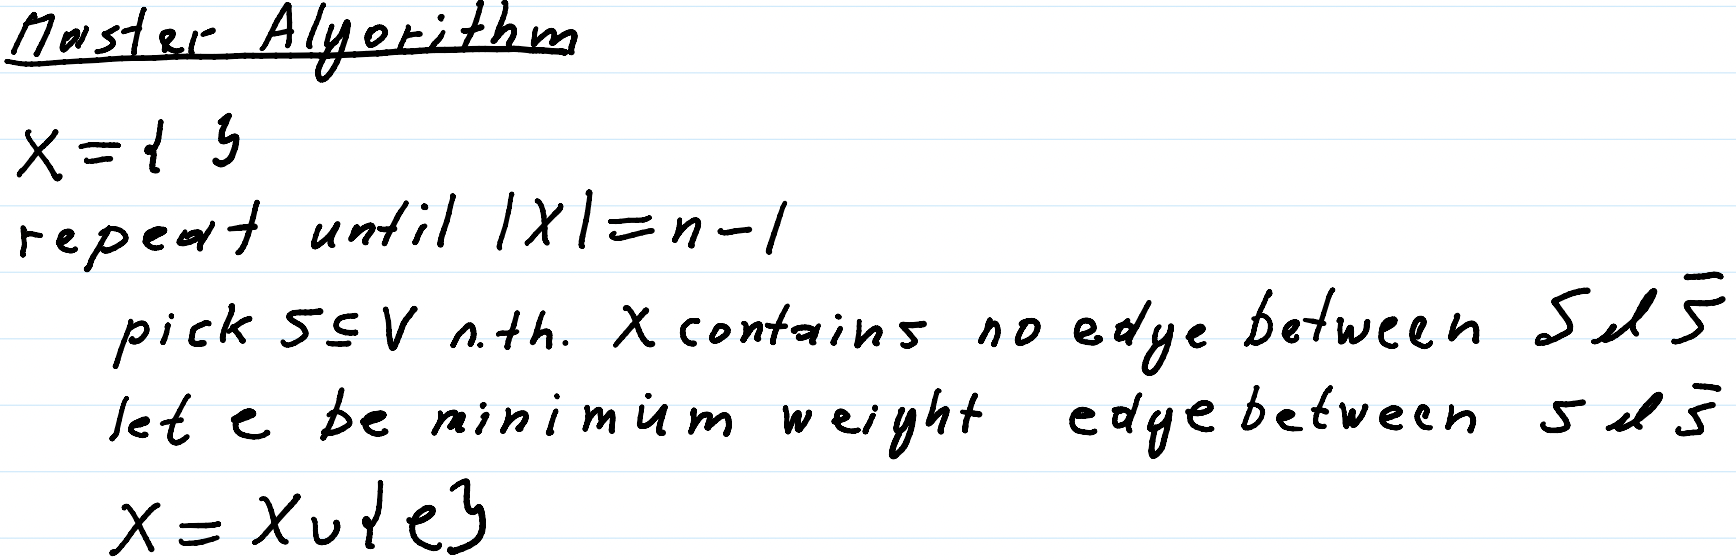 Master Algorithm
X = { }
repeat until |X| = n-1
pick S ⊆ V n.th. X contains no edge between S & S̅
let e be minimum weight edge between S & S̅
X = X ∪ {e}